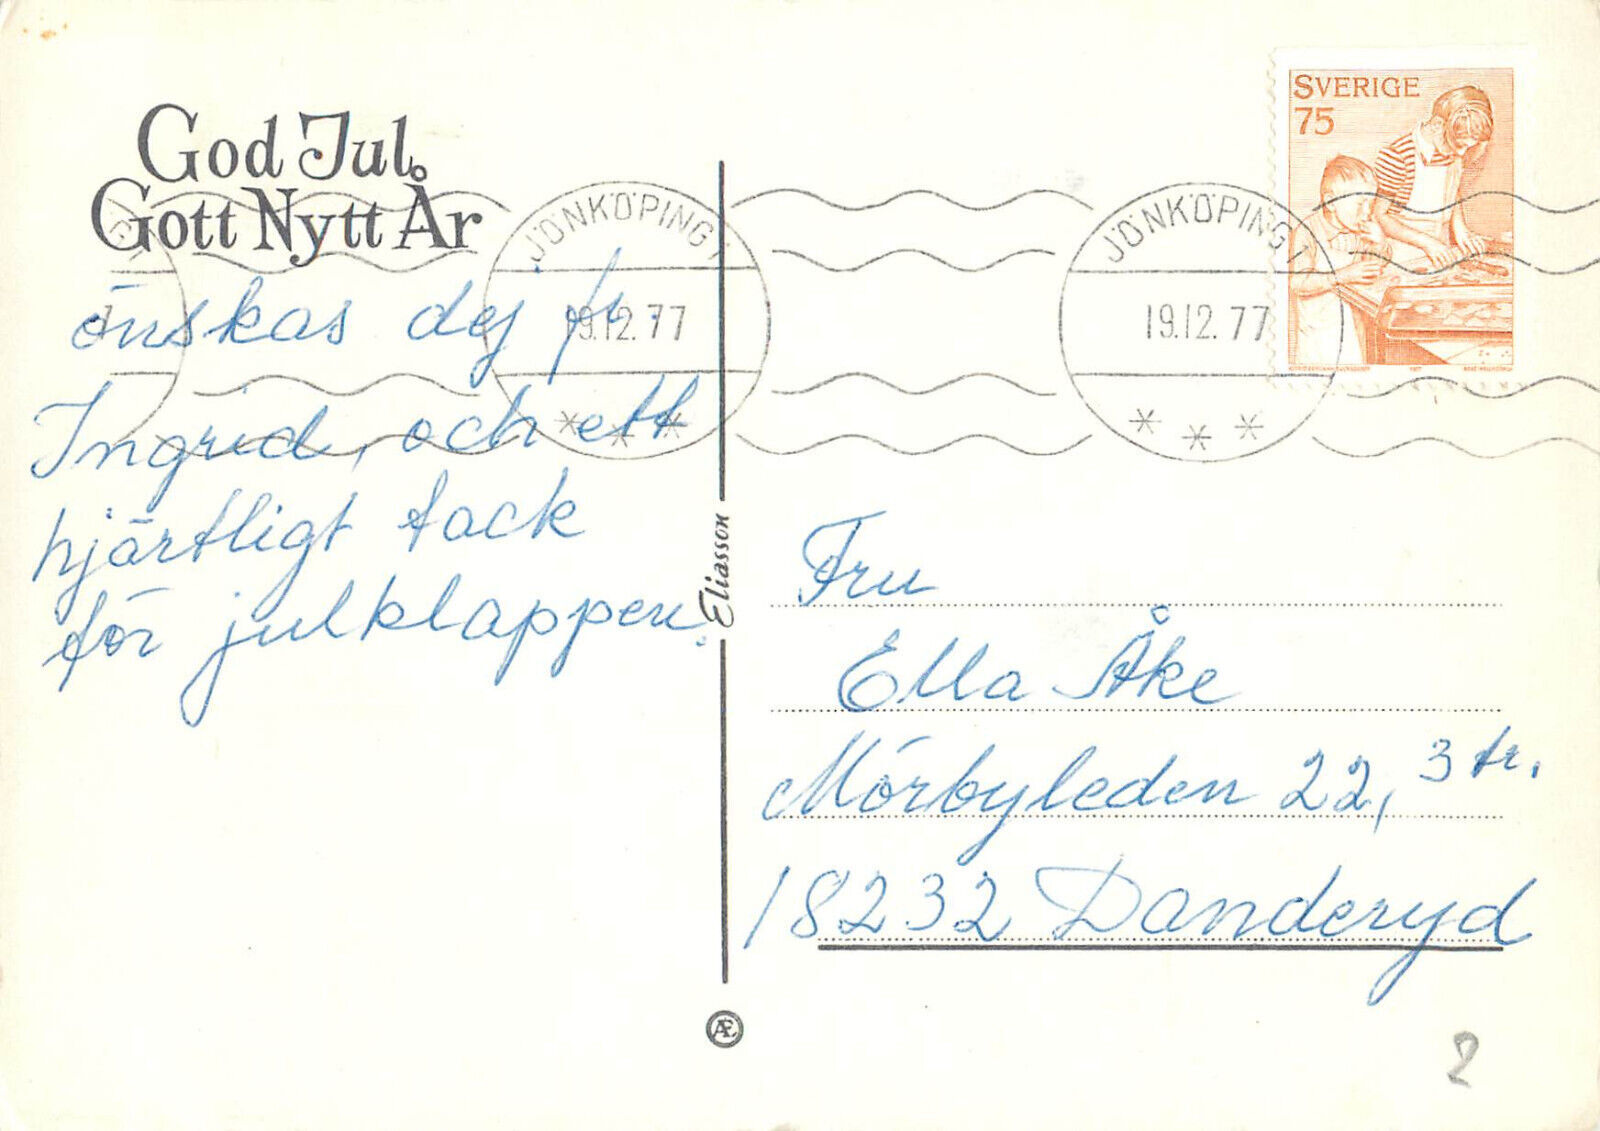 God Jul
Gott Nytt År
önskas dej fr.
Ingrid, och ett
hjärtligt tack
för julklappen.
Eliasson
SVERIGE
75
JÖNKÖPING 1
19.12.77
JÖNKÖPING 1
19.12.77
Fru
Ella Åke
Mörbyleden 22, 3 tr.
18232 Danderyd
Æ
2